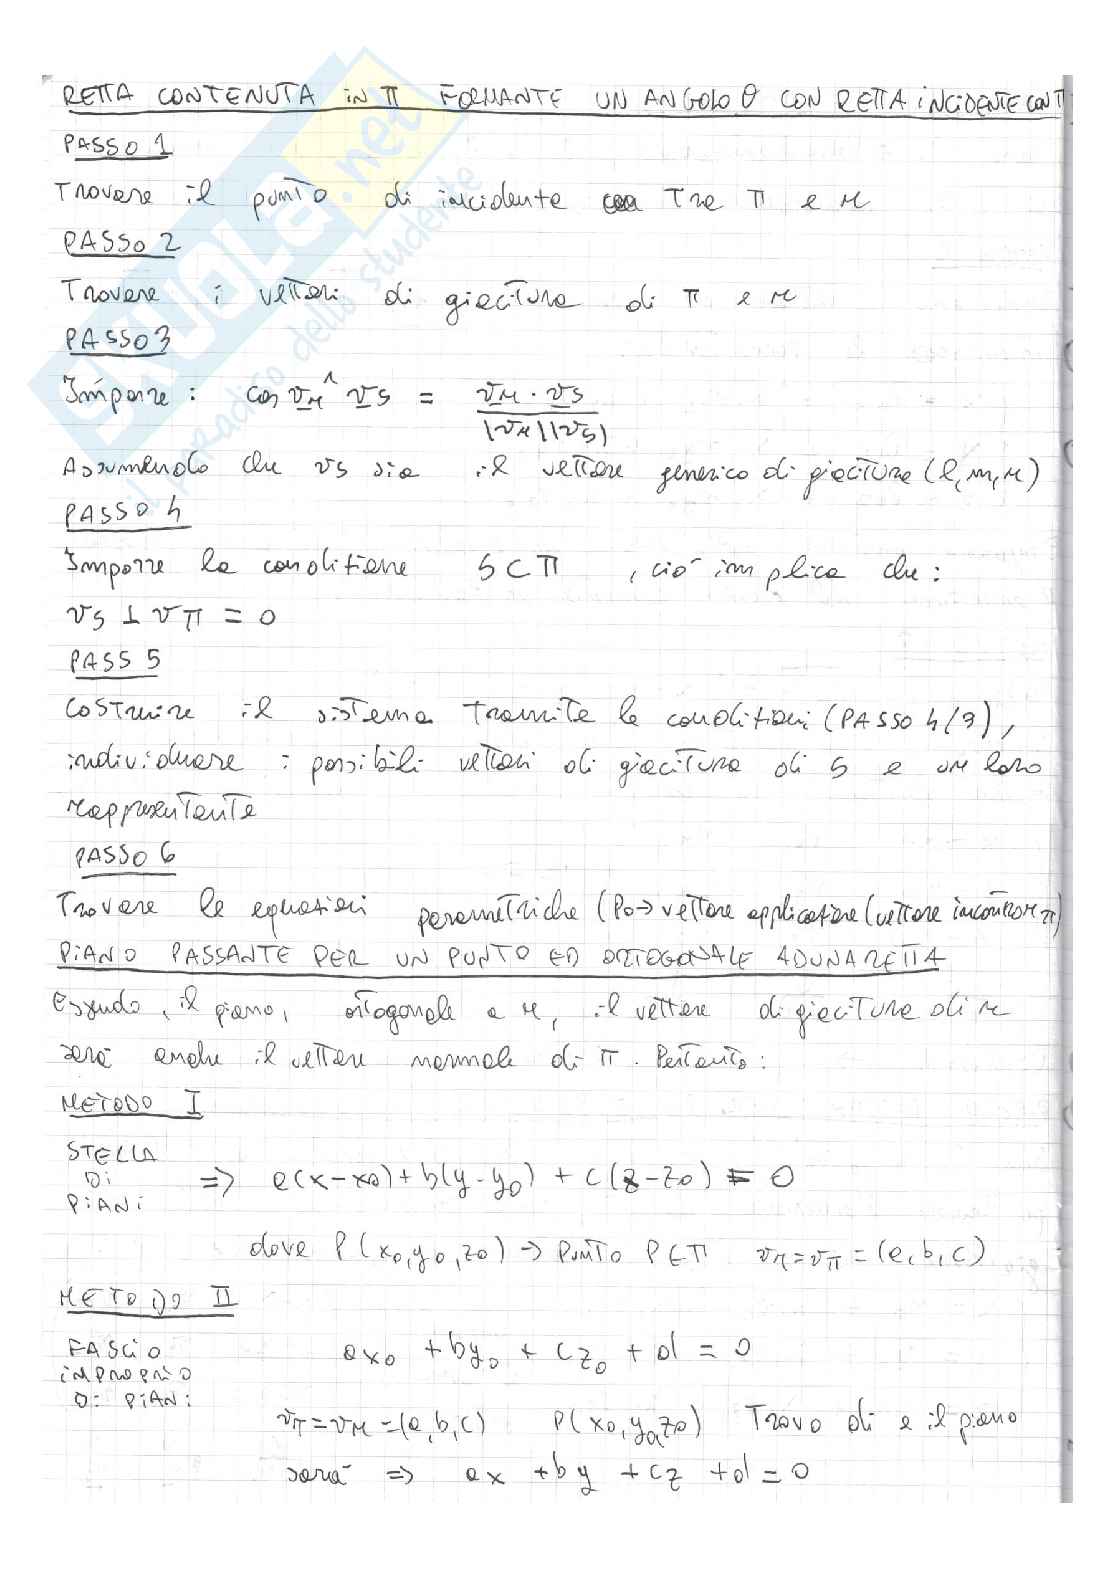 RETTA CONTENUTA in π FORMANTE UN ANGOLO θ CON RETTA iNCIDENTE CON π
PASSO 1
Trovare il punto di incidente tra π e r
PASSO 2
Trovare i vettori di giacitura di π e r
PASSO 3
Imporre : cos vr ^ vs = vr · vs / |vr| |vs|
Assumendo che vs sia il vettore generico di giacitura (l, m, n)
PASSO 4
Imporre la condizione s ⊂ π , ciò implica che :
vs ⊥ vπ = 0
PASS 5
Costruire il sistema tramite le condizioni (PASSO 4/3),
individuare i possibili vettori di giacitura di s e un loro
rappresentante
PASSO 6
Trovare le equazioni parametriche (Po → vettore applicazione (vettore incontro r π)
PIANO PASSANTE PER UN PUNTO ED ORTOGONALE AD UNA RETTA
Essendo, il piano, ortogonale a r, il vettore di giacitura di r
sarà anche il vettore normale di π. Pertanto :
METODO I
STELLA
Di
PiANi
⇒ a(x-x0) + b(y-y0) + c(z-z0) = 0
dove P(x0,y0,z0) → PUNTO P ∈ π vr = vπ = (a, b, c)
METODO II
FASCiO
iMPROPRiO
Di PiANi
ax0 + by0 + cz0 + d = 0
vπ = vr = (a, b, c) P(x0, y0, z0) Trovo d e il piano
sarà ⇒ ax + by + cz + d = 0
SKUOLA.net
il paradiso dello studente